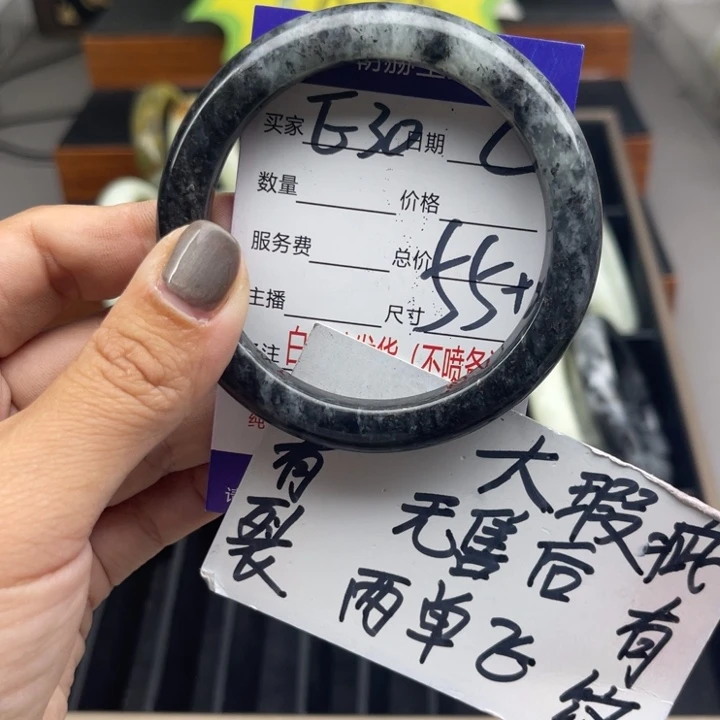 买家 E30 日期
数量 价格
服务费 总价
主播 尺寸 55+
注 白 发货(不喷备
纯
有裂
大瑕疵
无售后
两单飞
有纹